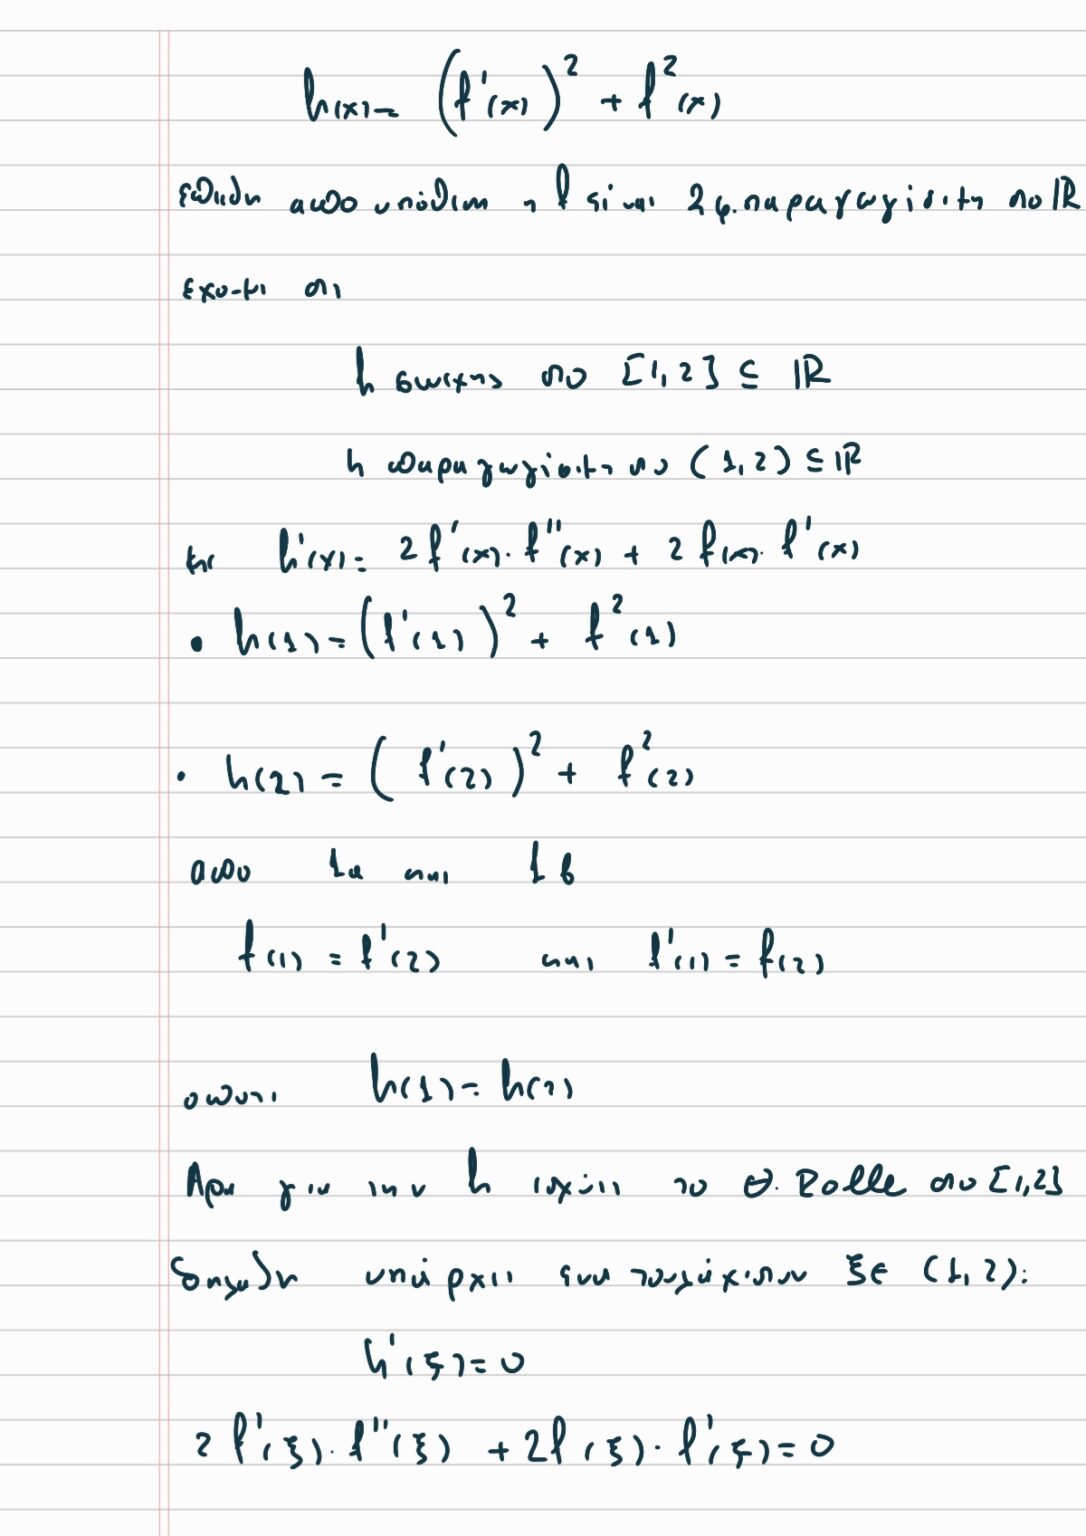 h(x) = (f'(x))² + f²(x)
επειδη απο υποθεση η f ειναι 2φ. παραγωγισιμη στο ℝ
εχουμε οτι
h συνεχης στο [1,2] ⊆ ℝ
h παραγωγισιμη στο (1,2) ⊆ ℝ
με h'(x) = 2f'(x)·f''(x) + 2f(x)·f'(x)
• h(1) = (f'(1))² + f²(1)
• h(2) = (f'(2))² + f²(2)
απο 1α και 1β
f(1) = f'(2) και f'(1) = f(2)
οποτε h(1) = h(2)
Αρα για την h ισχυει το Θ. Rolle στο [1,2]
δηλαδη υπάρχει ενα τουλάχιστον ξ ∈ (1,2):
h'(ξ) = 0
2f'(ξ)·f''(ξ) + 2f(ξ)·f'(ξ) = 0